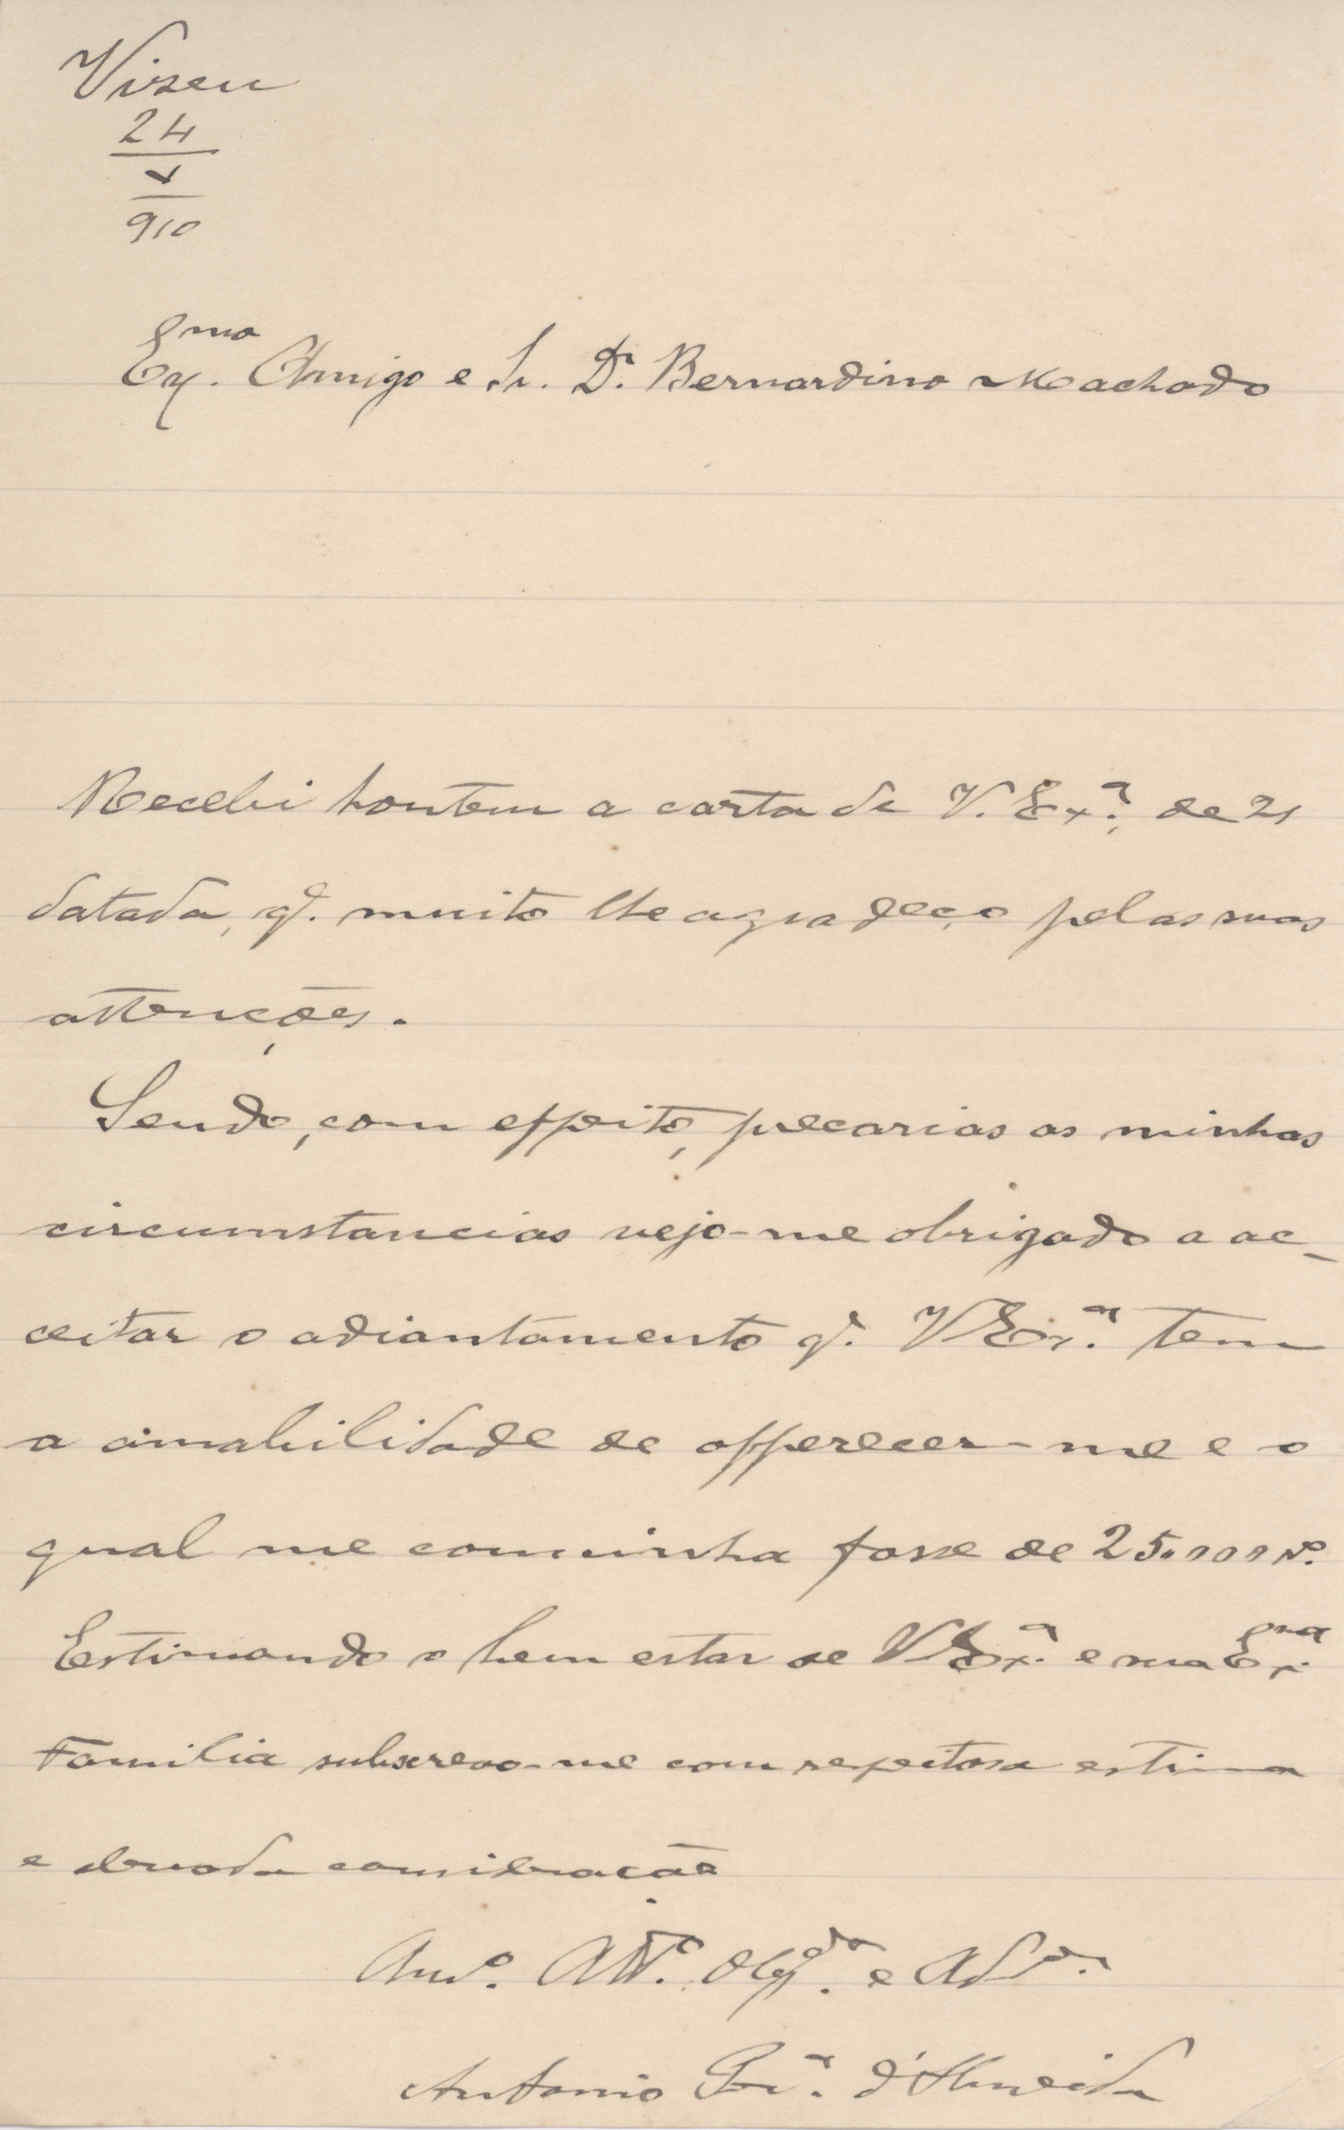 Viseu
24
V
910
Ex.mo Amigo e Sr. Dr. Bernardino Machado
Recebi hontem a carta de V. Ex.ª, de 21
datada, q. muito lhe agradeço pelas suas
attenções.
Sendo, com effeito, precarias as minhas
circumstancias vejo-me obrigado a ac-
ceitar o adiantamento q. V Ex.ª tem
a amabilidade de offerecer-me e o
qual me convinha fosse de 25.000 rs.
Estimando o bem estar de V Ex.ª e sua Ex.ma
Familia subscrevo-me com respeitosa estima
e elevada consideração
Am.º Att.º Obg.do e Ad.or
Antonio d'Almeida